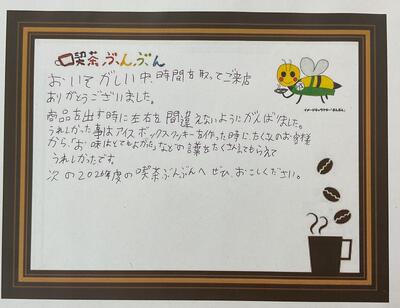 喫茶ぶんぶん
おいそがしい中、時間を取ってご来店
ありがとうございました。
商品を出す時に左右を間違えないようにがんばりました。
うれしかった事はアイスボックスクッキーを作った時にたくさんのお客様
から、「お味はとてもよかった」などの言葉をたくさんもらえて
うれしかったです。
次の2026年度の喫茶ぶんぶんへ ぜひ、おこしください。
イメージキャラクター「ぶんぶん」